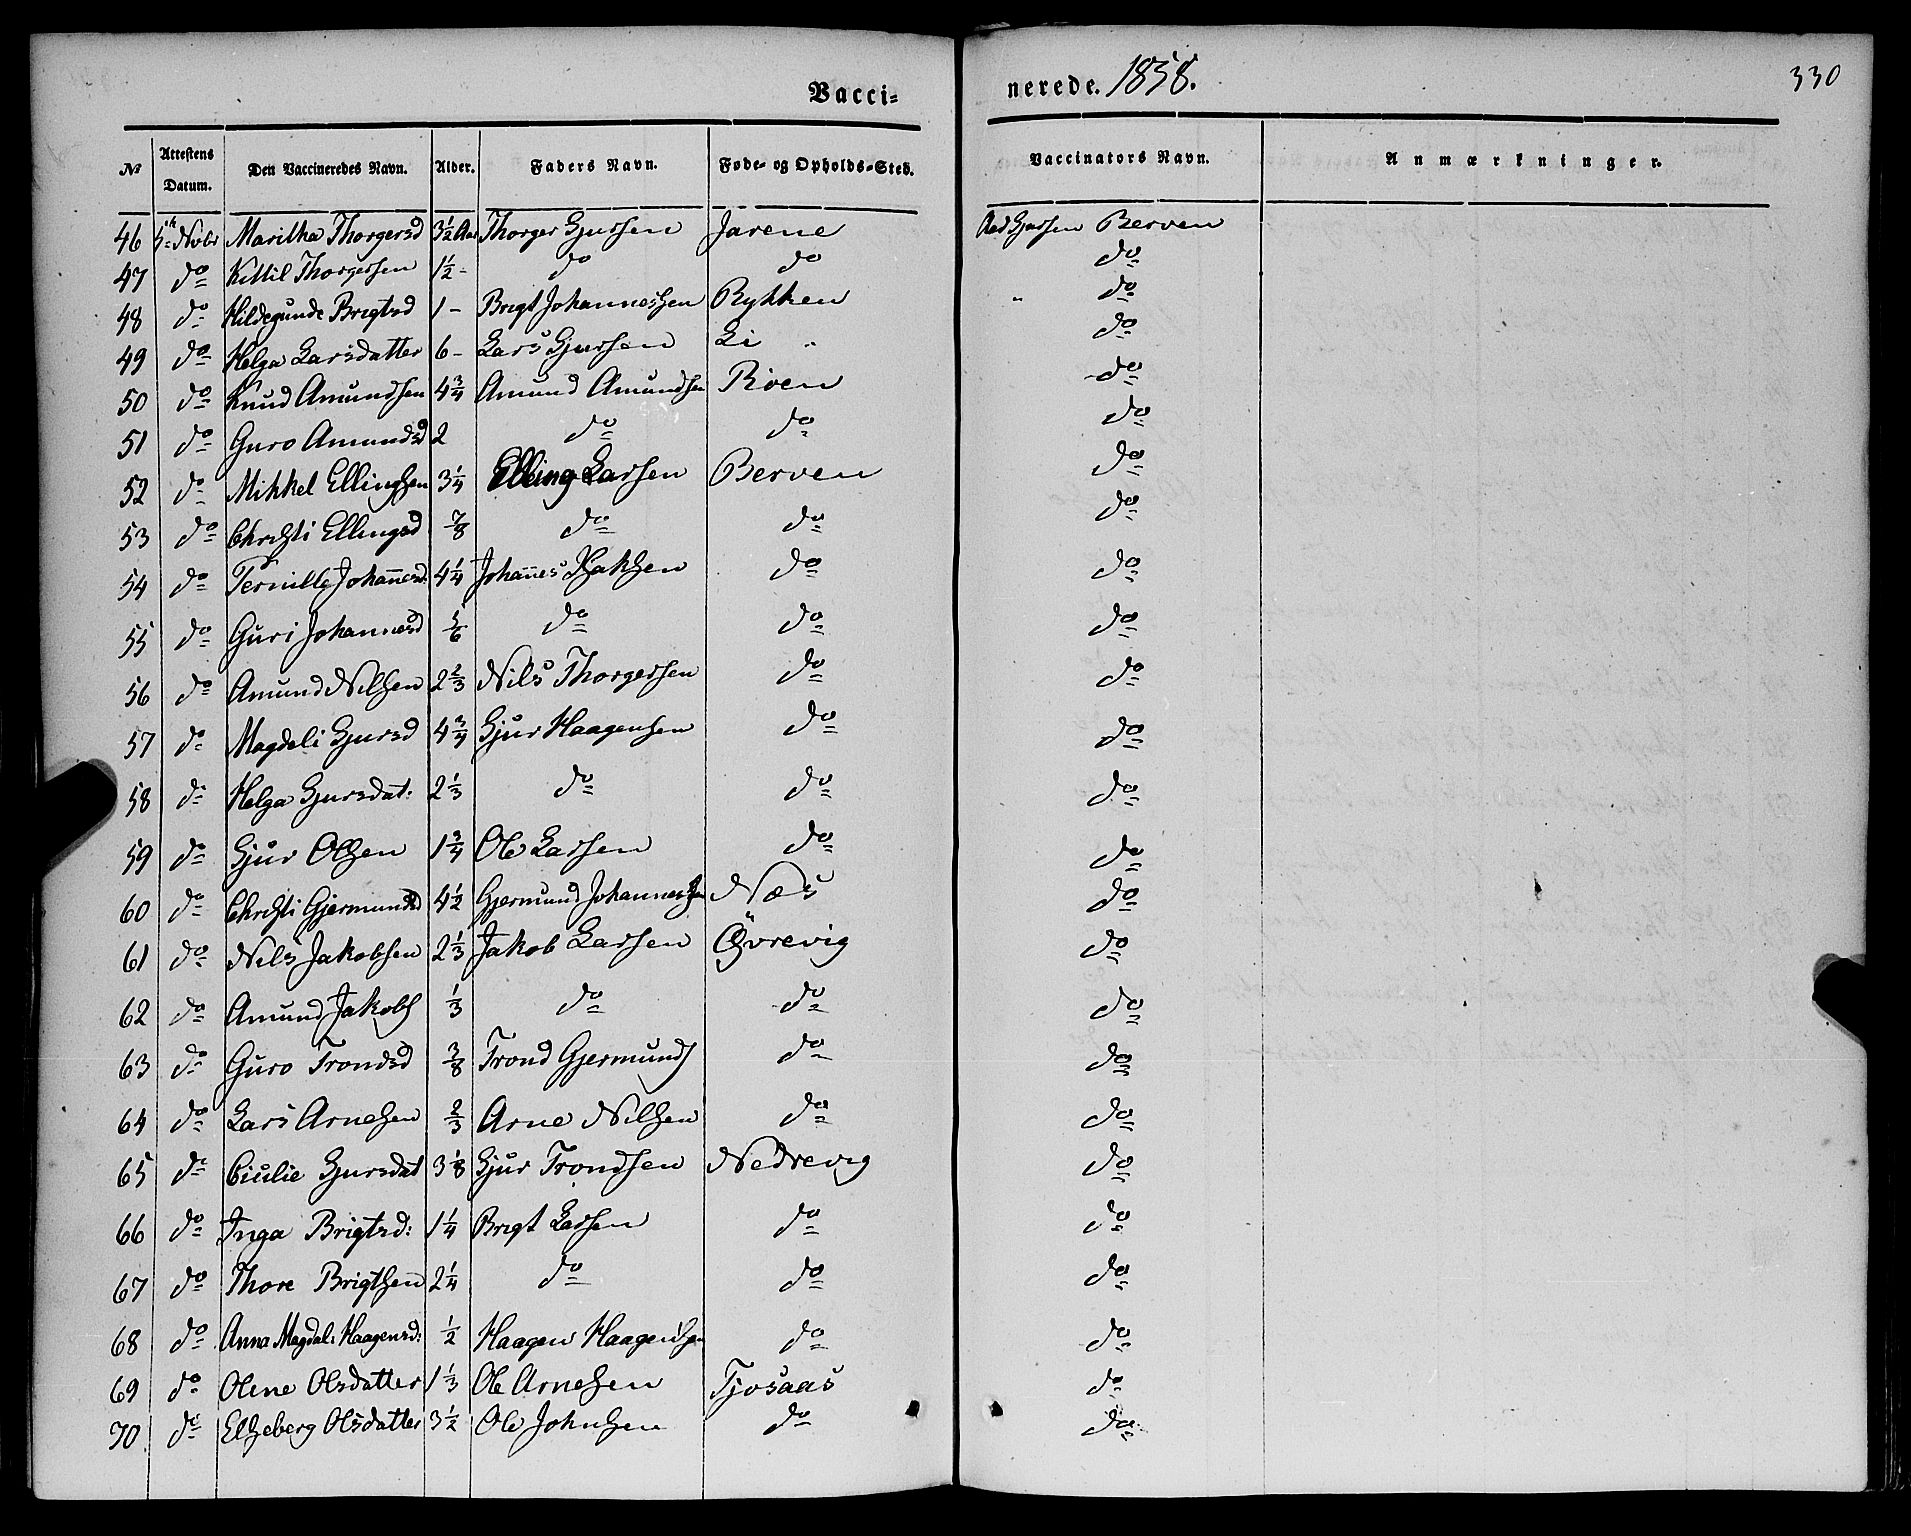 Vacci- nerede. 1858. 330
№ Attestens Datum. Den Vaccineredes Navn. Alder. Faders Navn. Føde- og Opholds-Sted. Vaccinators Navn. Anmærkninger.
46 5te Nvbr Maritha Thorgersd 3½ Aar Thorger Sjurssen Jarene Aad Sjurssen Berven
47 do Kittil Thorgerssen 1½ - do do do
48 do Hildegunde Brigtsd 1 - Brigt Johannessen Rykken " do
49 do Helga Larsdatter 6 - Lars Sjurssen Li " do
50 do Knud Amundsen 4¾ Amund Amundsen Riven do
51 do Guro Amundsd 2 do do do
52 do Mikkel Ellingsen 3¼ Elling Larssen Berven do
53 do Christi Ellingsd ⅞ do do do
54 do Pernille Johannesd. 4¼ Johannes Isaksen do do
55 do Guri Johannesd ⅚ do do do
56 do Amund Nilsen 2⅔ Nils Thorgerssen do do
57 do Magdeli Sjursd 4¾ Sjur Haagensen do do
58 do Helga Sjursdat: 2⅓ do do do
59 do Sjur Olsen 1¾ Ole Larssen do do
60 do Christi Gjermundsd 4½ Gjermund Johannessen Næs do
61 do Nils Jakobsen 2⅓ Jakob Larssen Øvrevig do
62 do Amund Jakobs ⅓ do do do
63 do Guro Trondsd ⅜ Trond Gjermunds do do
64 do Lars Arnesen ⅔ Arne Nilsen do do
65 do Ciulie Sjursdat 3⅛ Sjur Trondsen Nedrevig do
66 do Inga Brigtsd: 1¼ Brigt Larssen do do
67 do Thore Brigtsen 2¼ do do do
68 do Anna Magdal: Haagensd: ½ Haagen Haagensen do do
69 do Olene Olsdatter 1⅓ Ole Arnesen Tjosaas do
70. do Elseberg Olsdatter 3½ Ole Johnsen do do